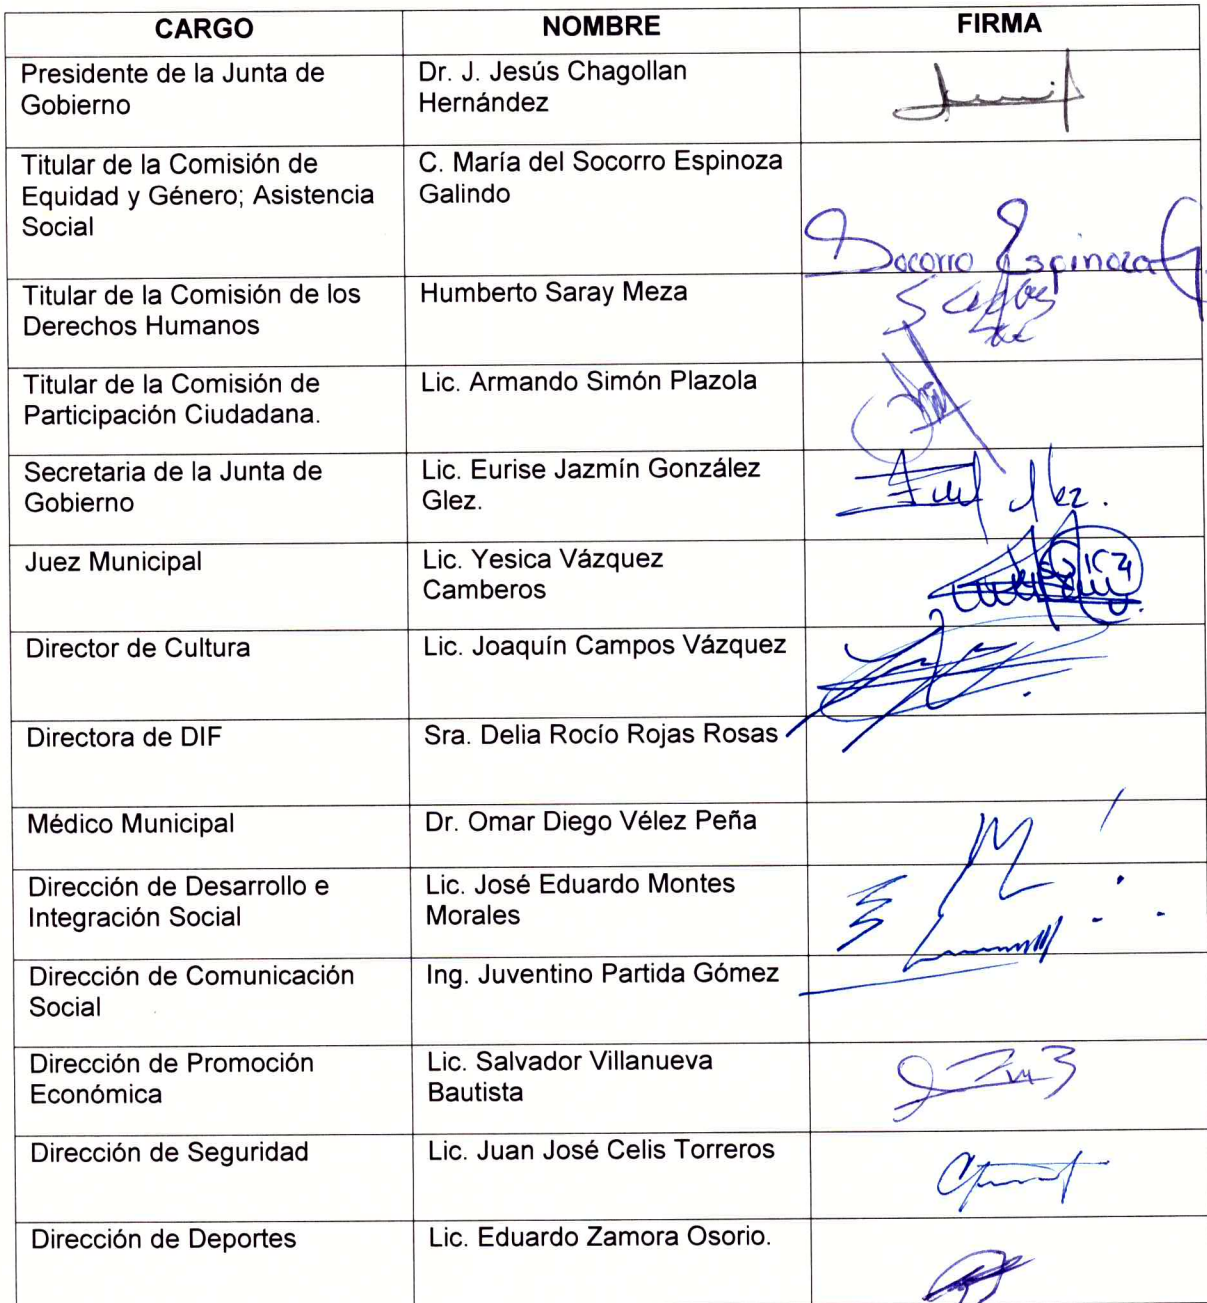 CARGO NOMBRE FIRMA
Presidente de la Junta de
Gobierno
Dr. J. Jesús Chagollan
Hernández
Titular de la Comisión de
Equidad y Género; Asistencia
Social
C. María del Socorro Espinoza
Galindo
Socorro Espinoza G.
Titular de la Comisión de los
Derechos Humanos
Humberto Saray Meza
Titular de la Comisión de
Participación Ciudadana.
Lic. Armando Simón Plazola
Secretaria de la Junta de
Gobierno
Lic. Eurise Jazmín González
Glez.
Juez Municipal
Lic. Yesica Vázquez
Camberos
Director de Cultura
Lic. Joaquín Campos Vázquez
Directora de DIF
Sra. Delia Rocío Rojas Rosas
Médico Municipal
Dr. Omar Diego Vélez Peña
Dirección de Desarrollo e
Integración Social
Lic. José Eduardo Montes
Morales
Dirección de Comunicación
Social
Ing. Juventino Partida Gómez
Dirección de Promoción
Económica
Lic. Salvador Villanueva
Bautista
Dirección de Seguridad
Lic. Juan José Celis Torreros
Dirección de Deportes
Lic. Eduardo Zamora Osorio.